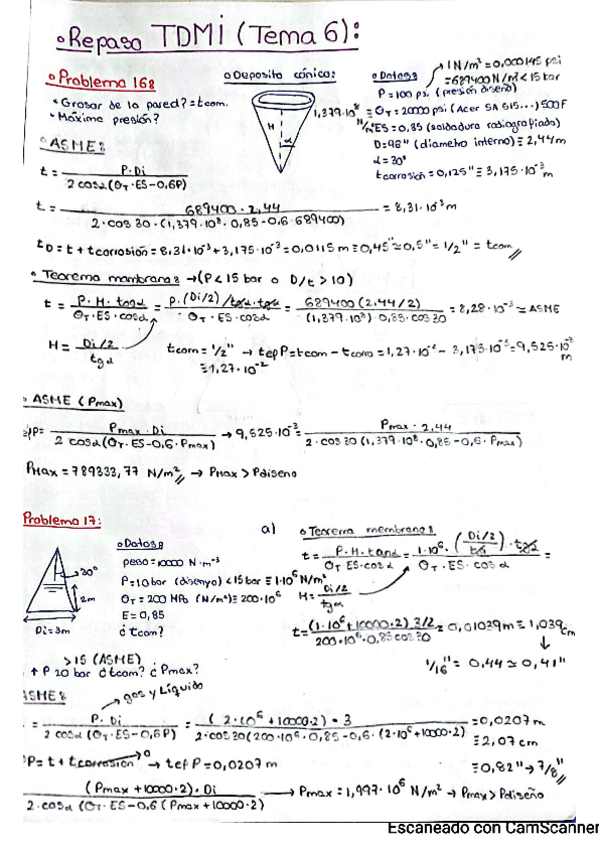 •Repaso TDMI (Tema 6):
•Problema 16:
• Grosor de la pared? = tcom.
• Máxima presión?
•Deposito cónico:
H
α
•Datos
1 N/m² = 0,000145 psi
P = 100 psi (presión diseño)
= 689400 N/m² < 15 bar
1,379·10⁸ N/m² ≡ σT = 20000 psi (Acer SA 515...) 500F
ES = 0,85 (soldadura radiografiada)
D = 96" (diametro interno) ≡ 2,44m
α = 30°
tcorrosión = 0,125" ≡ 3,175·10⁻³ m
•ASME:
t = P·Di / 2 cosα (σT·ES - 0,6P)
t = 689400 · 2,44 / 2·cos 30·(1,379·10⁸·0,85 - 0,6·689400) = 8,31·10⁻³ m
tD = t + tcorrosión = 8,31·10⁻³ + 3,175·10⁻³ = 0,0115 m ≡ 0,45" ≃ 0,5" = 1/2" = tcom
• Teorema membrana: → (P < 15 bar o D/t > 10)
t = P·H·tagα / σT·ES·cosα = P·(Di/2)/tgα·tgα / σT·ES·cosα = 689400 (2,44/2) / (1,379·10⁸)·0,85·cos 30 = 8,28·10⁻³ ≃ ASME
H = Di/2 / tgα
tcom = 1/2" → tefP = tcom - tcorro = 1,27·10⁻² - 3,175·10⁻³ = 9,525·10⁻³ m
≡ 1,27·10⁻²
• ASME (Pmax)
P = Pmax·Di / 2 cosα (σT·ES - 0,6·Pmax) → 9,525·10⁻³ = Pmax·2,44 / 2·cos 30 (1,379·10⁸·0,85 - 0,6·Pmax)
Pmax = 789333,77 N/m² → Pmax > Pdiseño
Problema 17:
30°
2m
Di = 3m
•Datos:
peso = 10000 N·m⁻³
P = 10 bar (disenyo) < 15 bar ≡ 1·10⁶ N/m²
σT = 200 MPa (N/m²) ≡ 200·10⁶
E = 0,85
¿tcom?
a)
• Teorema membrana:
t = P·H·tanα / ES·cosα = 1·10⁶·(Di/2 / tg)·tgα / σT·ES·cosα =
H = Di/2 / tgα
t = (1·10⁶ + 10000·2) 3/2 / 200·10⁶·0,85 cos 30 = 0,01039m ≡ 1,039 cm
↓
/16" = 0,44 ≃ 0,41"
> 15 (ASME)
↑ P 20 bar ¿tcom? ¿Pmax?
ASME:
→ gas y Líquido
= P·Di / 2 cosα (σT·ES - 0,6P) = (2·10⁶ + 10000·2)·3 / 2·cos 30 (200·10⁶·0,85 - 0,6·(2·10⁶ + 10000·2) = 0,0207 m
≡ 2,07 cm
≡ 0,82" → 7/8"
P = t + tcorrosión⁰ → tefP = 0,0207 m
(Pmax + 10000·2)·Di / 2·cosα (σT·ES - 0,6 (Pmax + 10000·2) → Pmax = 1,997·10⁶ N/m² → Pmax > Pdiseño
Escaneado con CamScanner